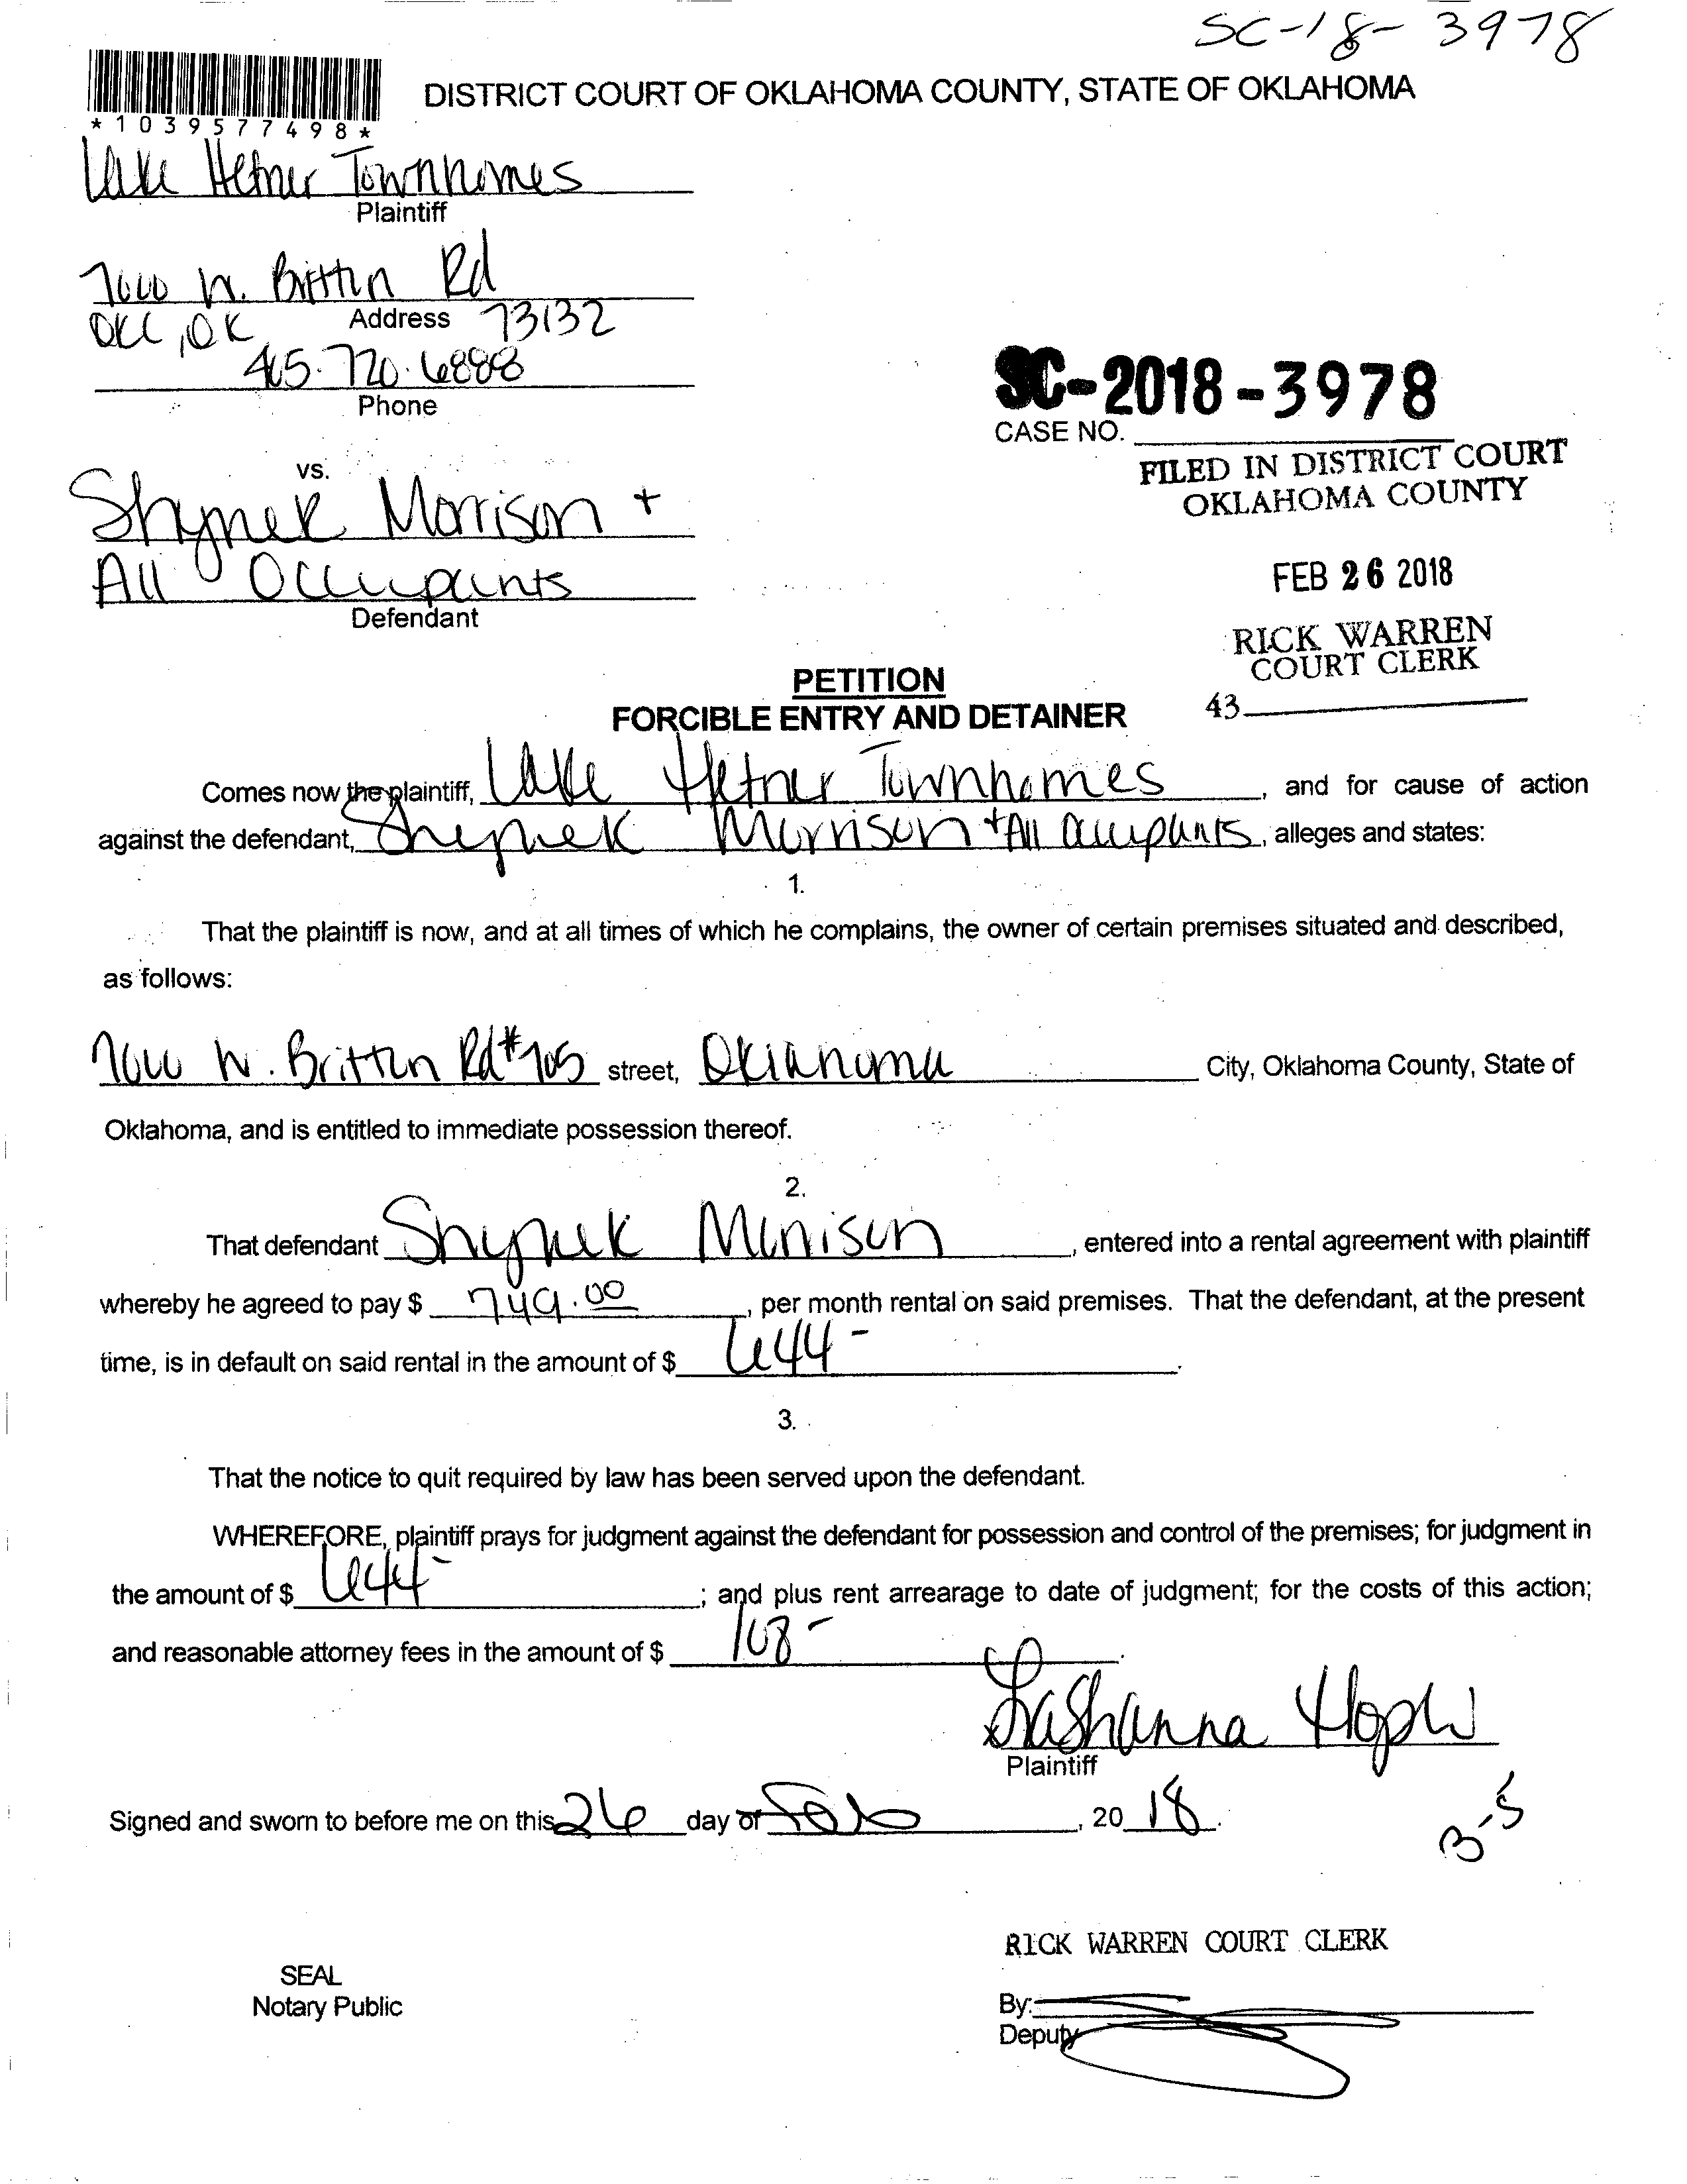 SC-18-3978
DISTRICT COURT OF OKLAHOMA COUNTY, STATE OF OKLAHOMA
*1039577498*
Lake Hefner Townhomes
Plaintiff
W. Britton Rd
OKC, OK Address 73132
405.720.6888
Phone
SC-2018-3978
CASE NO.
FILED IN DISTRICT COURT
OKLAHOMA COUNTY
FEB 26 2018
RICK WARREN
COURT CLERK
43
vs.
Shymek Morrison +
All Occupants
Defendant
PETITION
FORCIBLE ENTRY AND DETAINER
Comes now the plaintiff, Lake Hefner Townhomes, and for cause of action
against the defendant, Morrison + All Occupants, alleges and states:
1.
That the plaintiff is now, and at all times of which he complains, the owner of certain premises situated and described,
as follows:
W. Britton Rd #705 street, Oklahoma City, Oklahoma County, State of
Oklahoma, and is entitled to immediate possession thereof.
2.
That defendant Morrison, entered into a rental agreement with plaintiff
whereby he agreed to pay $ 749.00, per month rental on said premises. That the defendant, at the present
time, is in default on said rental in the amount of $ 644-.
3.
That the notice to quit required by law has been served upon the defendant.
WHEREFORE, plaintiff prays for judgment against the defendant for possession and control of the premises; for judgment in
the amount of $ 644-; and plus rent arrearage to date of judgment; for the costs of this action;
and reasonable attorney fees in the amount of $ 108-.
LaShanna
Plaintiff
Signed and sworn to before me on this 26 day of Feb, 20 18.
3-5
RICK WARREN COURT CLERK
SEAL
Notary Public
By:
Deputy